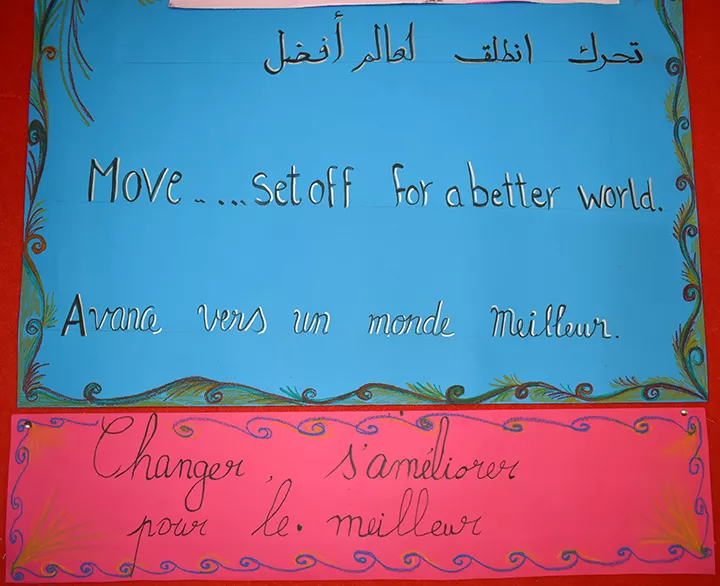 تحرك انطلق لعالم أفضل
Move ..... set off for a better world.
Avance vers un monde meilleur.
Changer, s'améliorer
pour le. meilleur